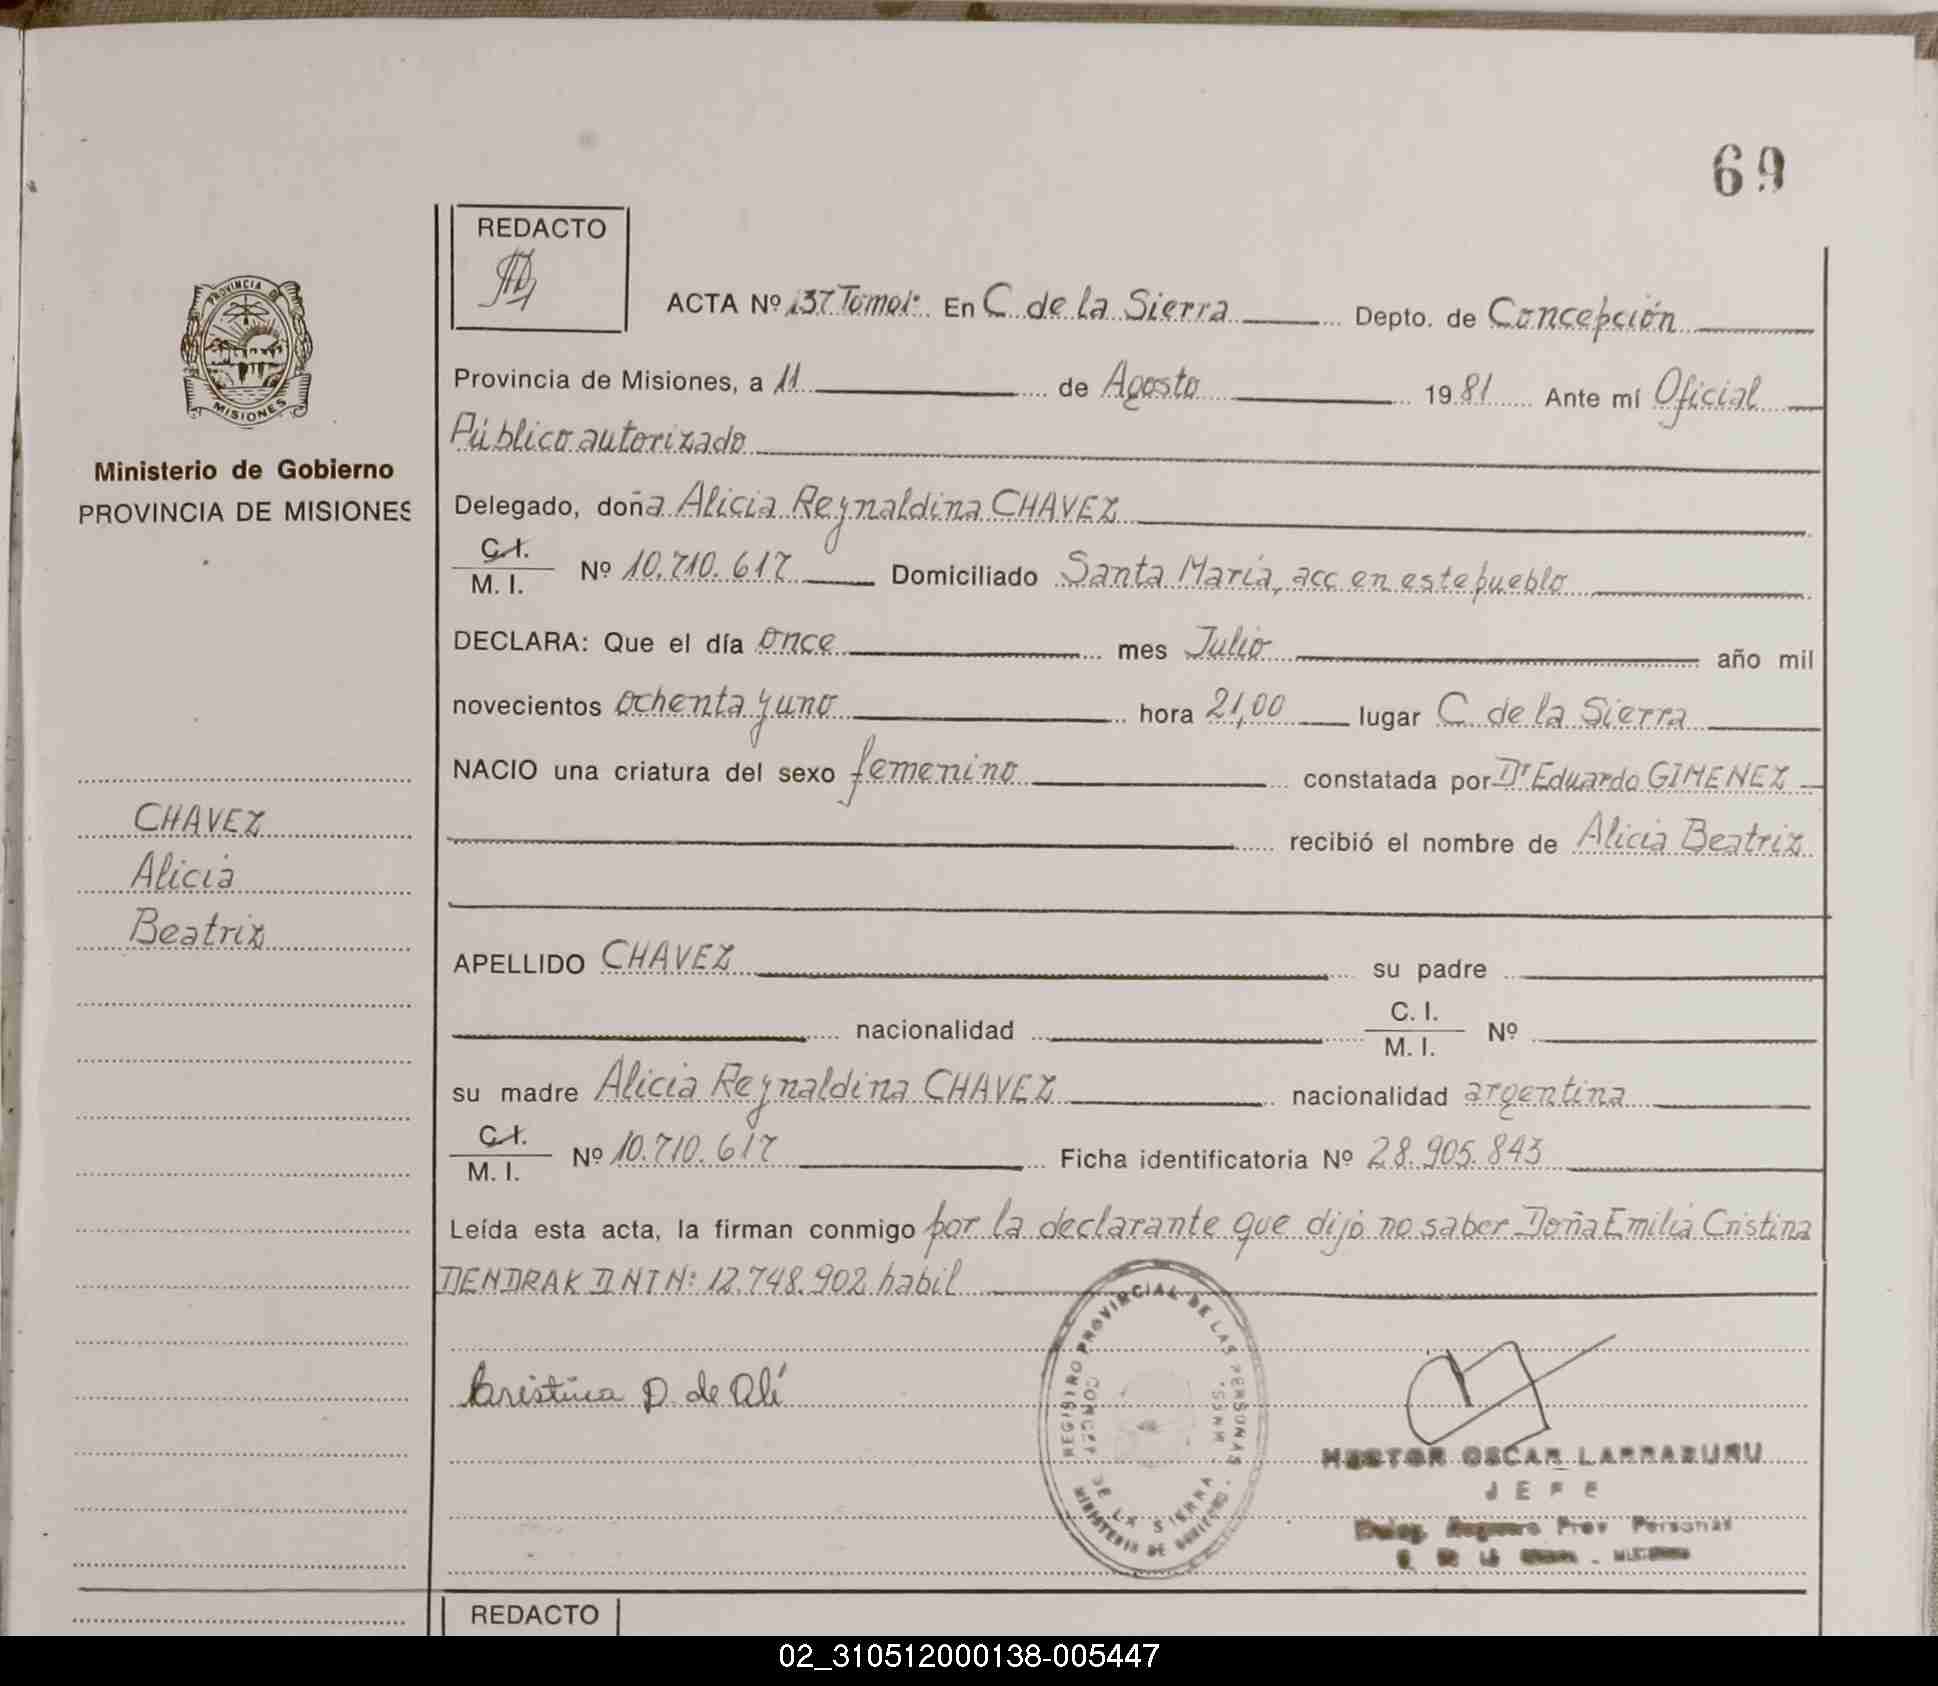 69
REDACTO
ACTA Nº 137 Tomo 1º En C. de la Sierra Depto. de Concepción
Provincia de Misiones, a 11 de Agosto 1981 Ante mí Oficial
Público autorizado
Delegado, doña Alicia Reynaldina CHAVEZ
C.I.
M. I. Nº 10.710.617 Domiciliado Santa María, acc en este pueblo
DECLARA: Que el día once mes Julio año mil
novecientos ochenta y uno hora 21,00 lugar C. de la Sierra
NACIO una criatura del sexo femenino constatada por Dr Eduardo GIMENEZ
recibió el nombre de Alicia Beatriz
APELLIDO CHAVEZ su padre
nacionalidad C. I.
M. I. Nº
su madre Alicia Reynaldina CHAVEZ nacionalidad argentina
C.I.
M. I. Nº 10.710.617 Ficha identificatoria Nº 28.905.843
Leída esta acta, la firman conmigo por la declarante que dijo no saber Doña Emilia Cristina
DENDRAK DNI Nº 12.748.902 habil
Cristina D. de Alí
PROVINCIA DE
MISIONES
Ministerio de Gobierno
PROVINCIA DE MISIONES
CHAVEZ
Alicia
Beatriz
REGISTRO PROVINCIAL DE LAS PERSONAS
DE LA SIERRA - MNES.
MINISTERIO DE GOBIERNO
OSCAR LARRAZURU
JEFE
Prov Personas
REDACTO
02_310512000138-005447